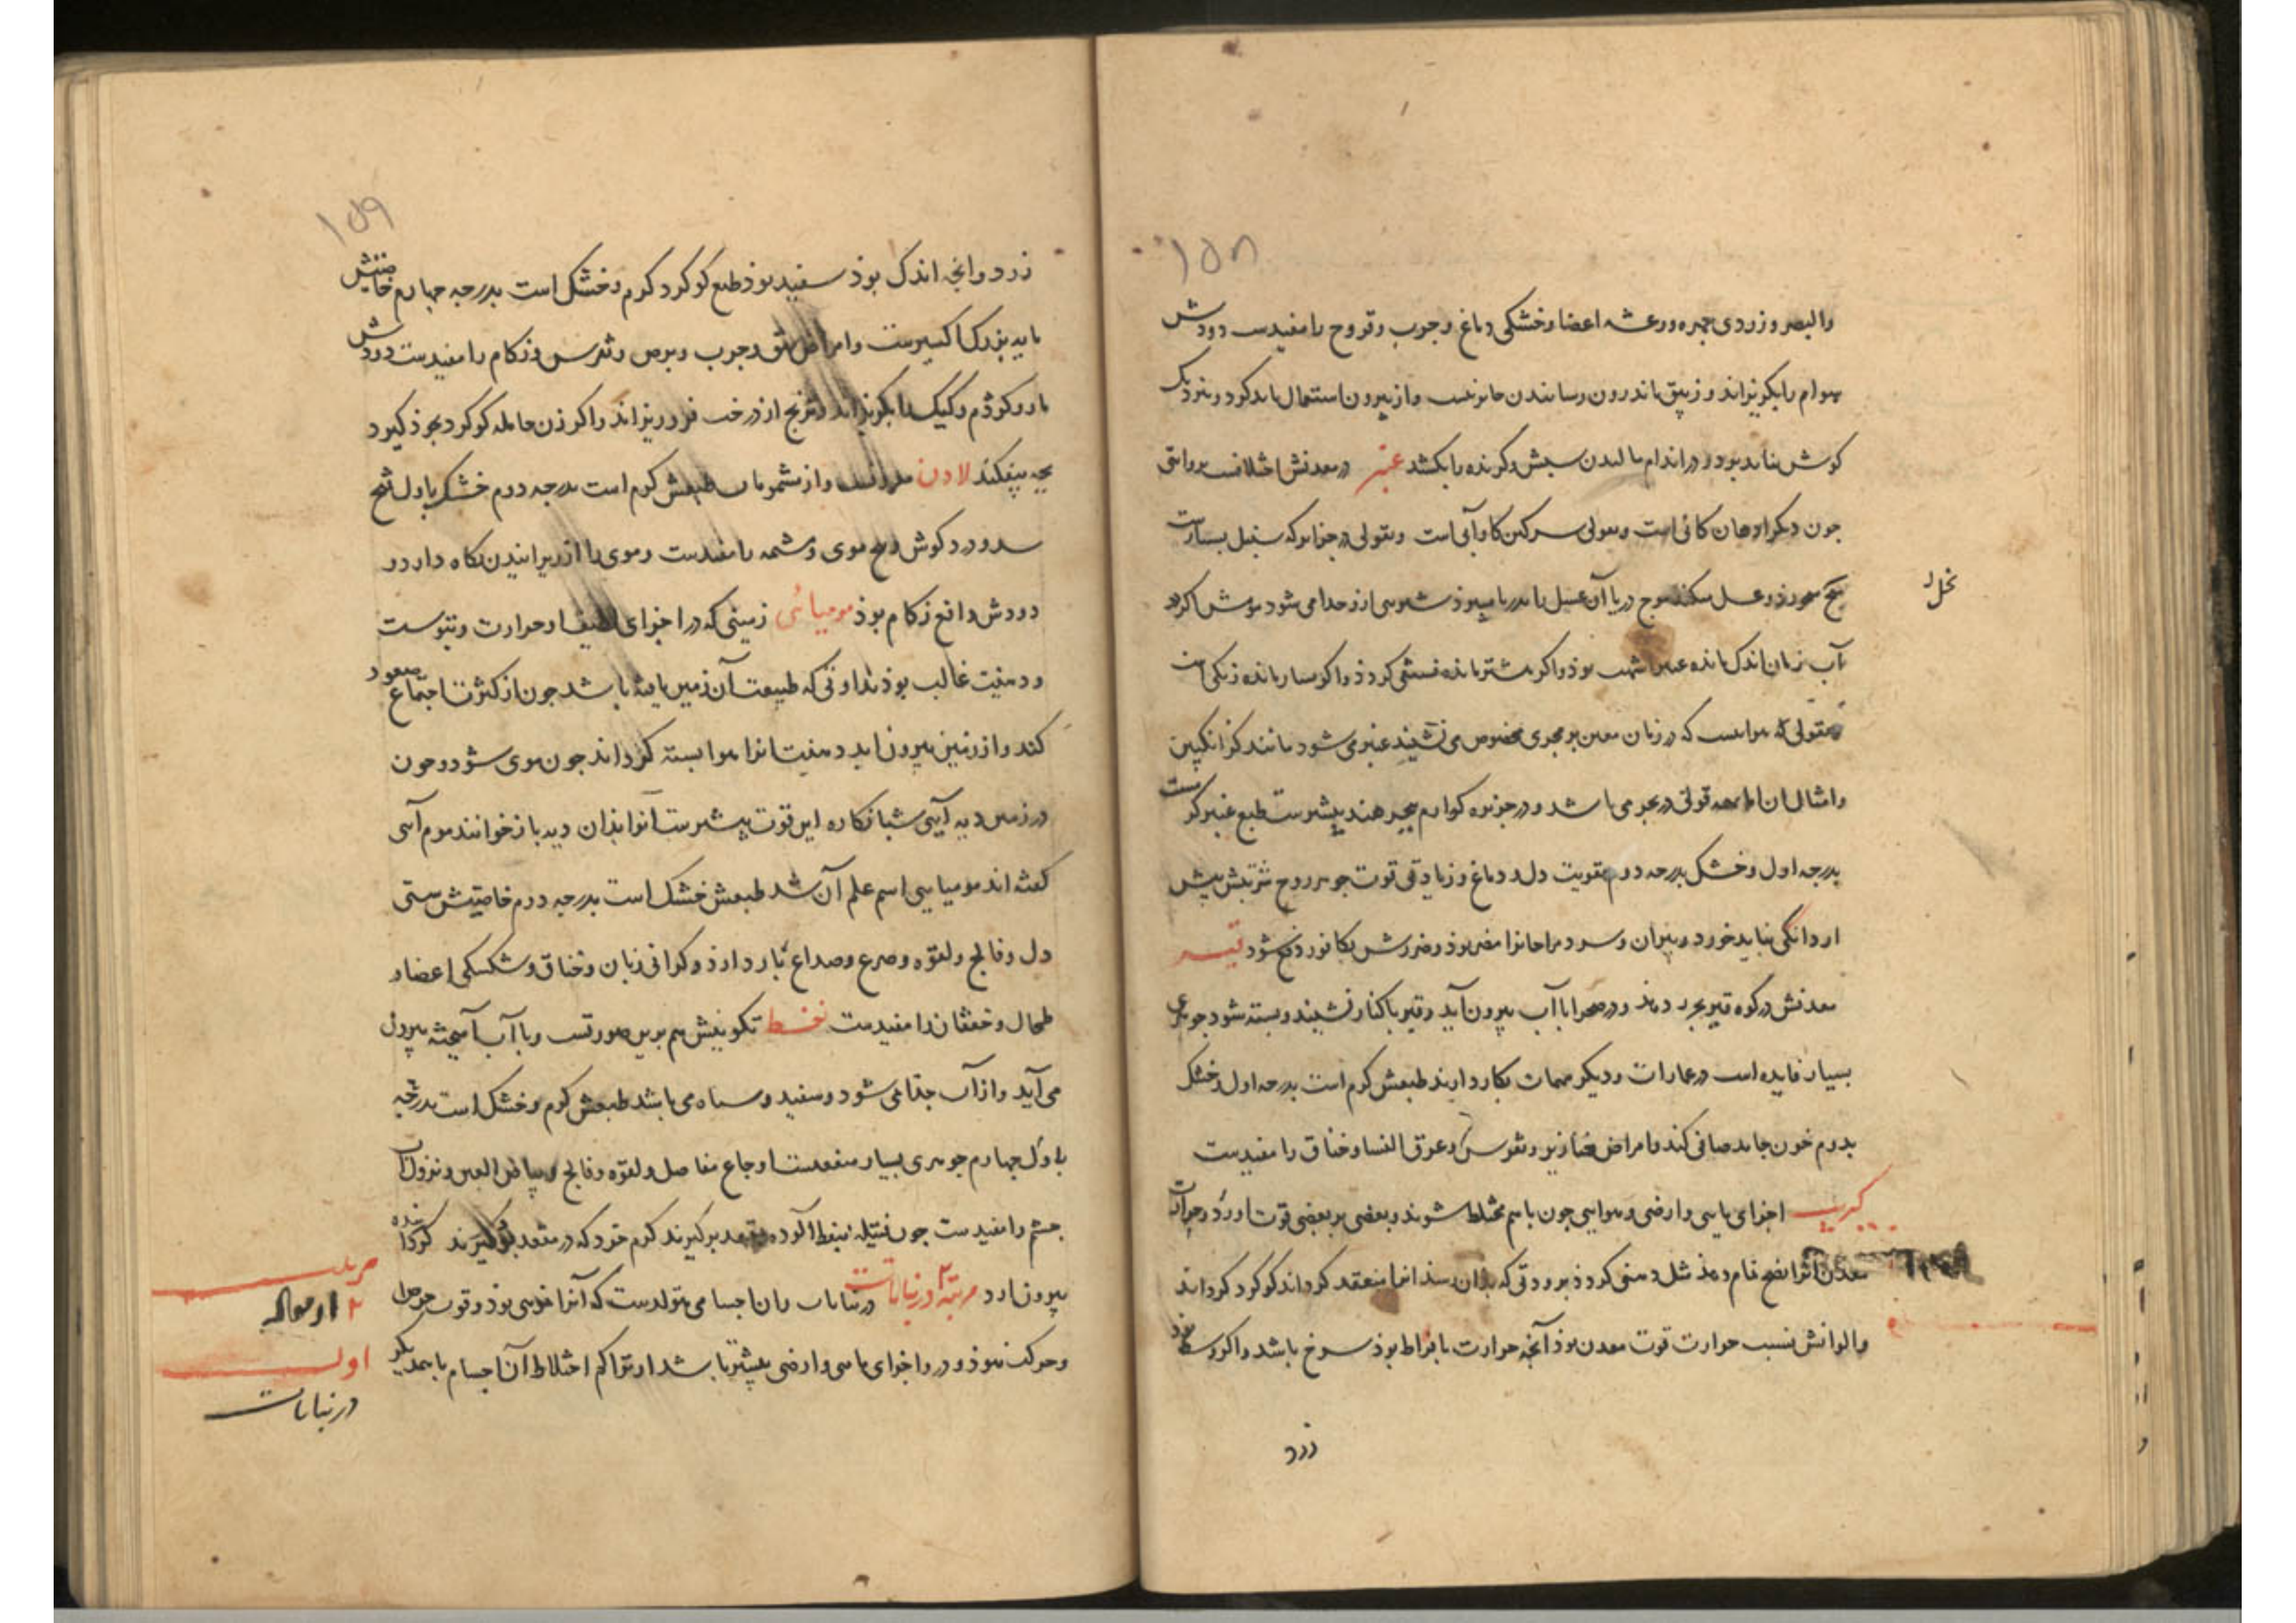 ۱۵۸
والبصر و زردی جهره ورعشه اعضا وخشکی دماغ وجوب وقروح را مفیدست دودش
هوام را بکریزاند و زیبق باندرون رسانیدن جایز نیست واز بیرون استعمال باید کرد و بنزدیک
کوش نباید برد و در اندام مالیدن سبش وکرنده را بکشد عنبر در معدنش اختلافست بروایتی
جون دیکر ادهان کانی است وبقولی سرکین کاو آبی است وبقولی در جزایر که سنبل بسیارست
نحل
آب زمان اندک مانده عنبر اشهب بوذ واکر بیشتر مانده فستقی کردذ واکر بسیار مانده زنکی
وبقولی که هوایست که در زمان معین بر مجری مخصوص می نشیند عنبر می شود مانند کزانکبین
وامثال آن قولی در بحر می باشد و در جزیره کوارم ببحر هند بیشترست طبع عنبر کرمست
بدرجه اول وخشک بدرجه دوم مقویت دل و دماغ و زیادتی قوت جوهر روح شربتش بیش
از دانکی نباید خورد و پیران وسرد مزاجانرا مضر بوذ وضررش بکافور دفع شود قیر
معدنش در کوه قیر بحر دهذ ودر صحرا با آب بیرون آید وقیر باکنار نشیند وبسته شود جوهری
بسیار فایده است در عمارات ودیکر مهمات بکار دارند طبعش کرم است بدرجه اول وخشک
بدوم خون جامد صافی کند وامراض خنازیر ونقرس وعرق النسا وخناق را مفیدست
کبریت اجزای مایی وارضی وهوایی جون باهم مختلط شوند وبعضی بر بعضی قوت اورد وحرارت
معدن آنرا نضج تمام دهذ مثل دهنی کردذ برودتی که بدان رسذ انرا منعقد کرداند کوکرد کرداند
والوانش نسبت حرارت قوت معدن بوذ آنجه حرارت بافراط بوذ سرخ باشد واکر وسط بوذ
زرد
۱۵۹
زرد وانجه اندک بوذ سفید بوذ طبع کوکرد کرم وخشک است بدرجه جهارم خاصیتش
مایه بزرک اکسیرست وامراض بهق وجوب وبرص ونقرس وزکام را مفیدست دودش
مار وکژدم وکیک را بکریزاند وترنج از درخت فرو ریزاند واکر زن حامله کوکرد بخوذ کیرد
بجه بیفکند لادن معروفست واز مشمومات طبعش کرم است بدرجه دوم خشک باول
درد کوش وموی ومشمه را مفیدست وموی را از ریزانیدن نکاه دارد و
دودش دافع زکام بوذ مومیائی زمینی که در اجزای لطیف او حرارت ویبوست
ودهنیت غالب بوذ نداوتی که طبیعت آن زمین یافته باشد جون از کثرت اجتماع صعود
کند واز زمین بیرون اید دهنیت انرا هوا بسته کرداند جون موی شود وجون
در زمین دیه آیی شبانکاره این قوت بیشترست آنرا بذان دیه باز خوانند موم آیی
کفته اند مومیایی اسم علم آن شد طبعش خشک است بدرجه دوم خاصیتش سستی
دل وفالج ولقوه وصرع وصداع بارد دارذ وکرانی زبان وخناق وشکستکی اعضا و
طحال وخفقان را مفیدست نفط تکوینش هم برین صورتست وبا آب آمیخته بیرون
می آید واز آب جذا می شود وسفید وسیاه می باشد طبعش کرم وخشک است بدرجه
باول جهارم جوهری بسیار منفعتست اوجاع مفاصل ولقوه وفالج وبیاض العین ونزول آب
جشم را مفیدست جون فتیله بنفط آلوده بمقعد برکیرند کرم خرد که در مقعد بوذ
بیرون ارد مرتبه ۲ در نباتات در نباتات وان اجسامی متولدست که آنرا
وحرکت نبوذ ودر و اجزای مایی وارضی بیشتر باشد از تراکم اختلاط آن اجسام با همدیکر
مرتبه
۲ از مقاله
اولی
در نباتات